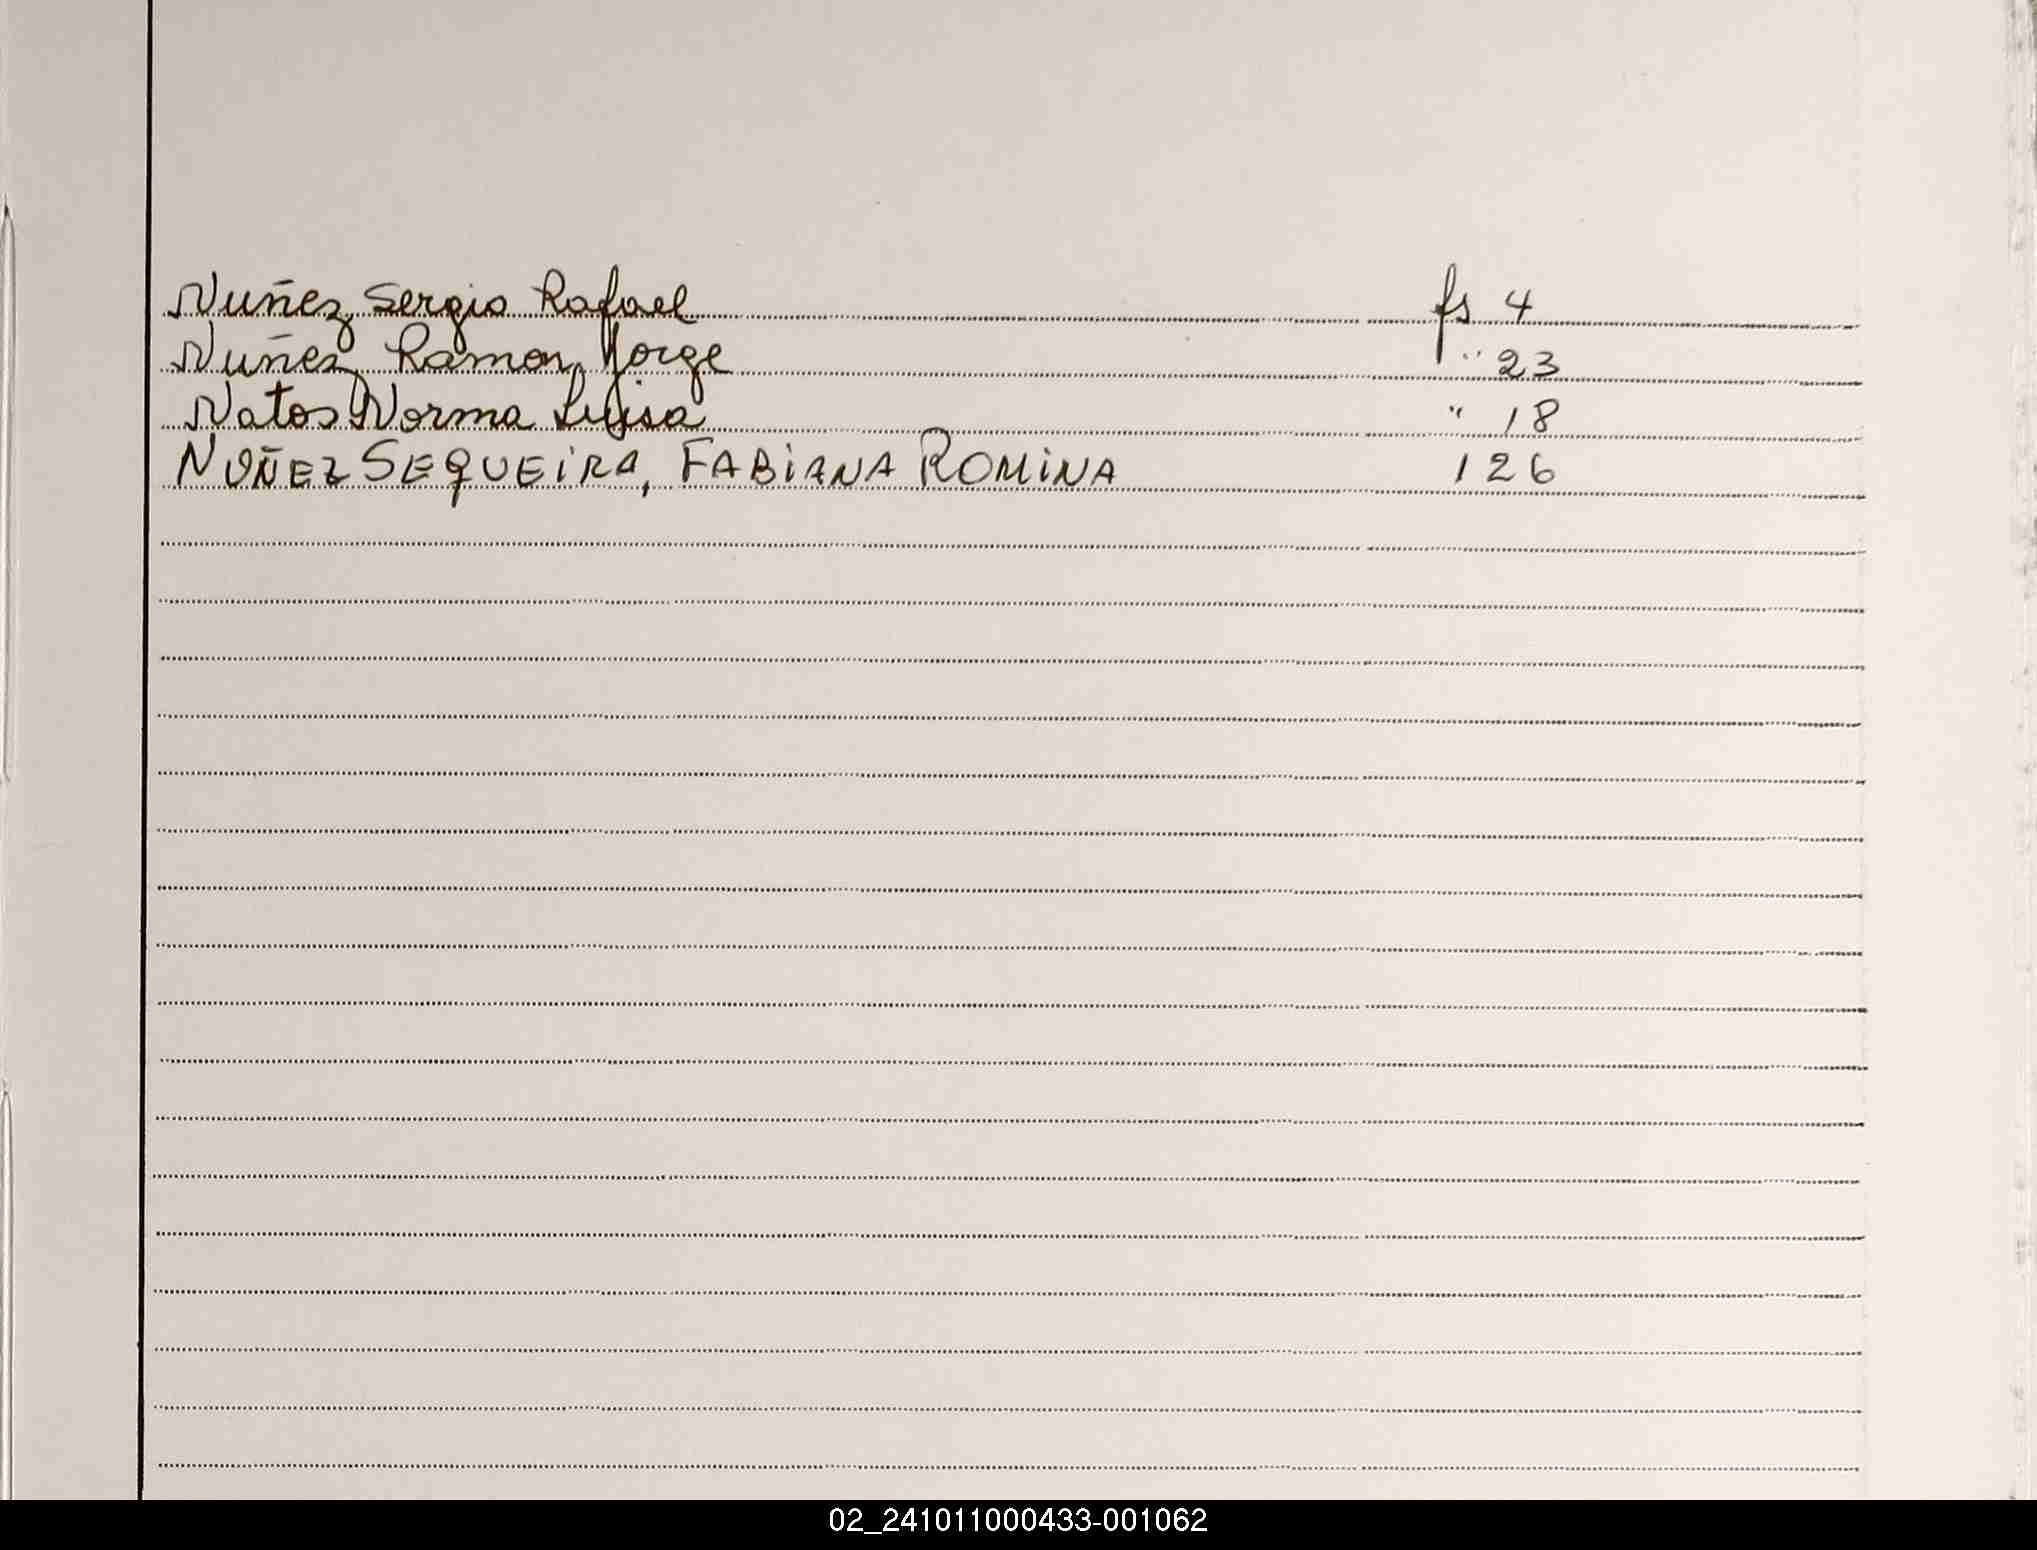 Nuñez Sergio Rafael fs 4
Nuñez Ramon Jorge " 23
Natos Norma Luisa " 18
NUÑEZ SEQUEIRA, FABIANA ROMINA 126
02_241011000433-001062